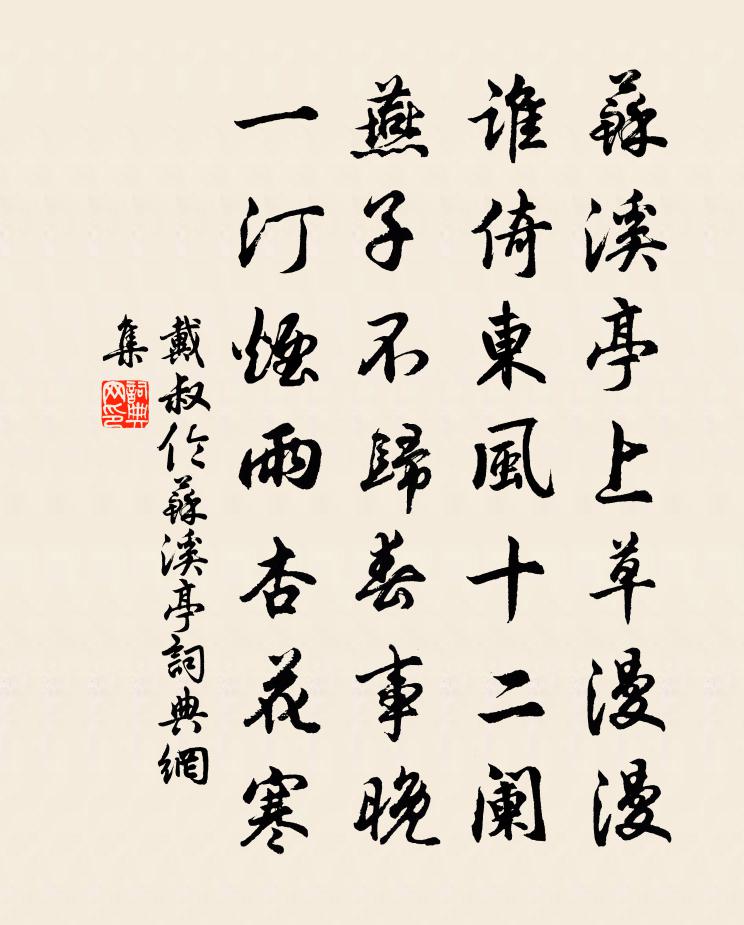 蘇溪亭上草漫漫
誰倚東風十二闌
燕子不歸春事晚
一汀煙雨杏花寒
戴叔伦蘇溪亭詞典網
集
詞典
网印